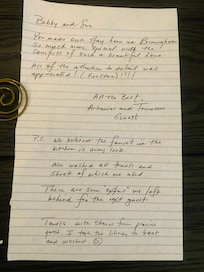 Bobby and Sue
You made our stay here in Birmingham
So much more special with the
Comforts of such a beautiful home
All of the attention to detail was
appreciated! ( ) !!!!
All The Best,
Arkansas and Tennessee
Guest
P.S. We noticed the faucet in the
kitchen is now loose.
We washed all towels and
Sheets of which we used
There are some "extras" we left
behind for the next guest
Towels with stains from
I took the liberty to treat
and washed. ☺